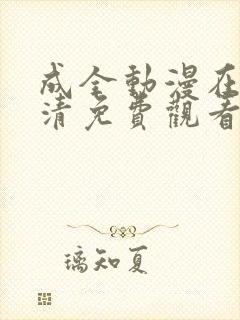 成全動漫在
清免費觀看
璃知夏